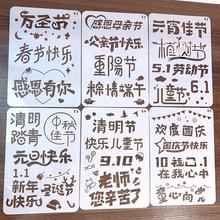 万圣节
春节快乐
感恩有你
感恩母亲节
父亲节快乐
重陽节
粽情端午
元宵佳节
植树节
5.1劳动节
儿童节
6.1
清明
踏青
中秋
佳节
元旦快乐
1.1
新年
快乐
圣诞节
清明节
快乐儿童节
9.10
老师
您辛苦了
欢度国庆
国庆节快乐
10
童心向